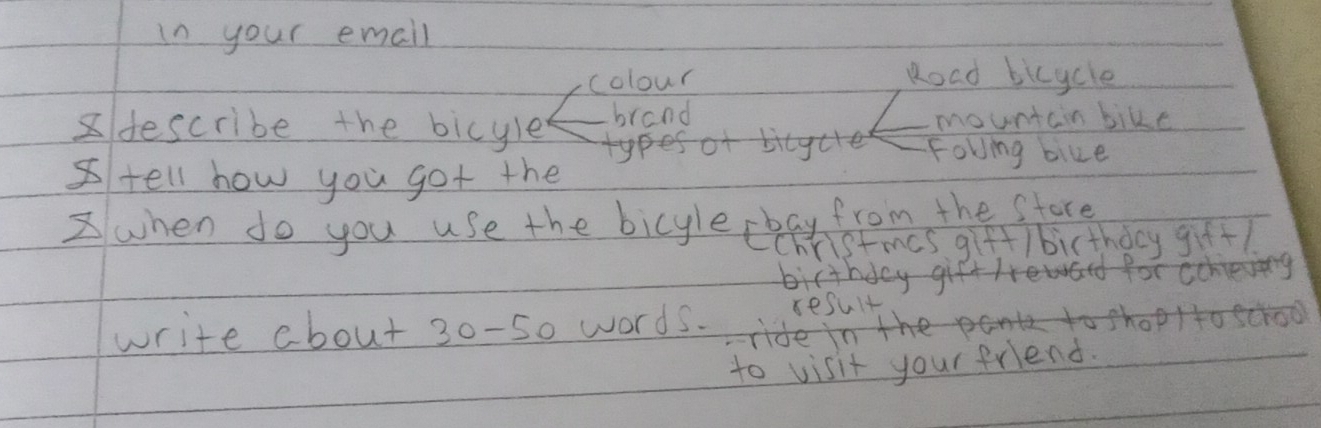 in your email
colour
Road bicycle
describe the bicyle
brand
mountain bike
types of bicycle
Folding bike
tell how you got the
when do you use the bicyle
bay from the store
Christmas gift / birthday gift /
birthday gift / reward for achieving
result
write about 30-50 words.
ride in the park to shop / to school
to visit your friend.